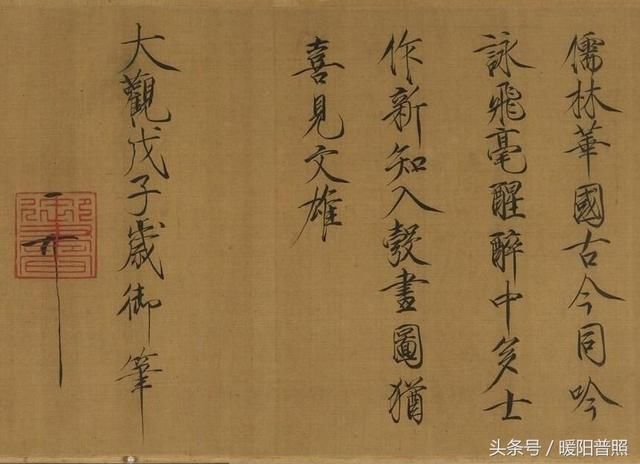 儒林華國古今同吟
詠飛毫醒醉中多士
作新知入彀畫圖猶
喜見文雄
大觀戊子歲御筆
頭条号 / 暖阳普照